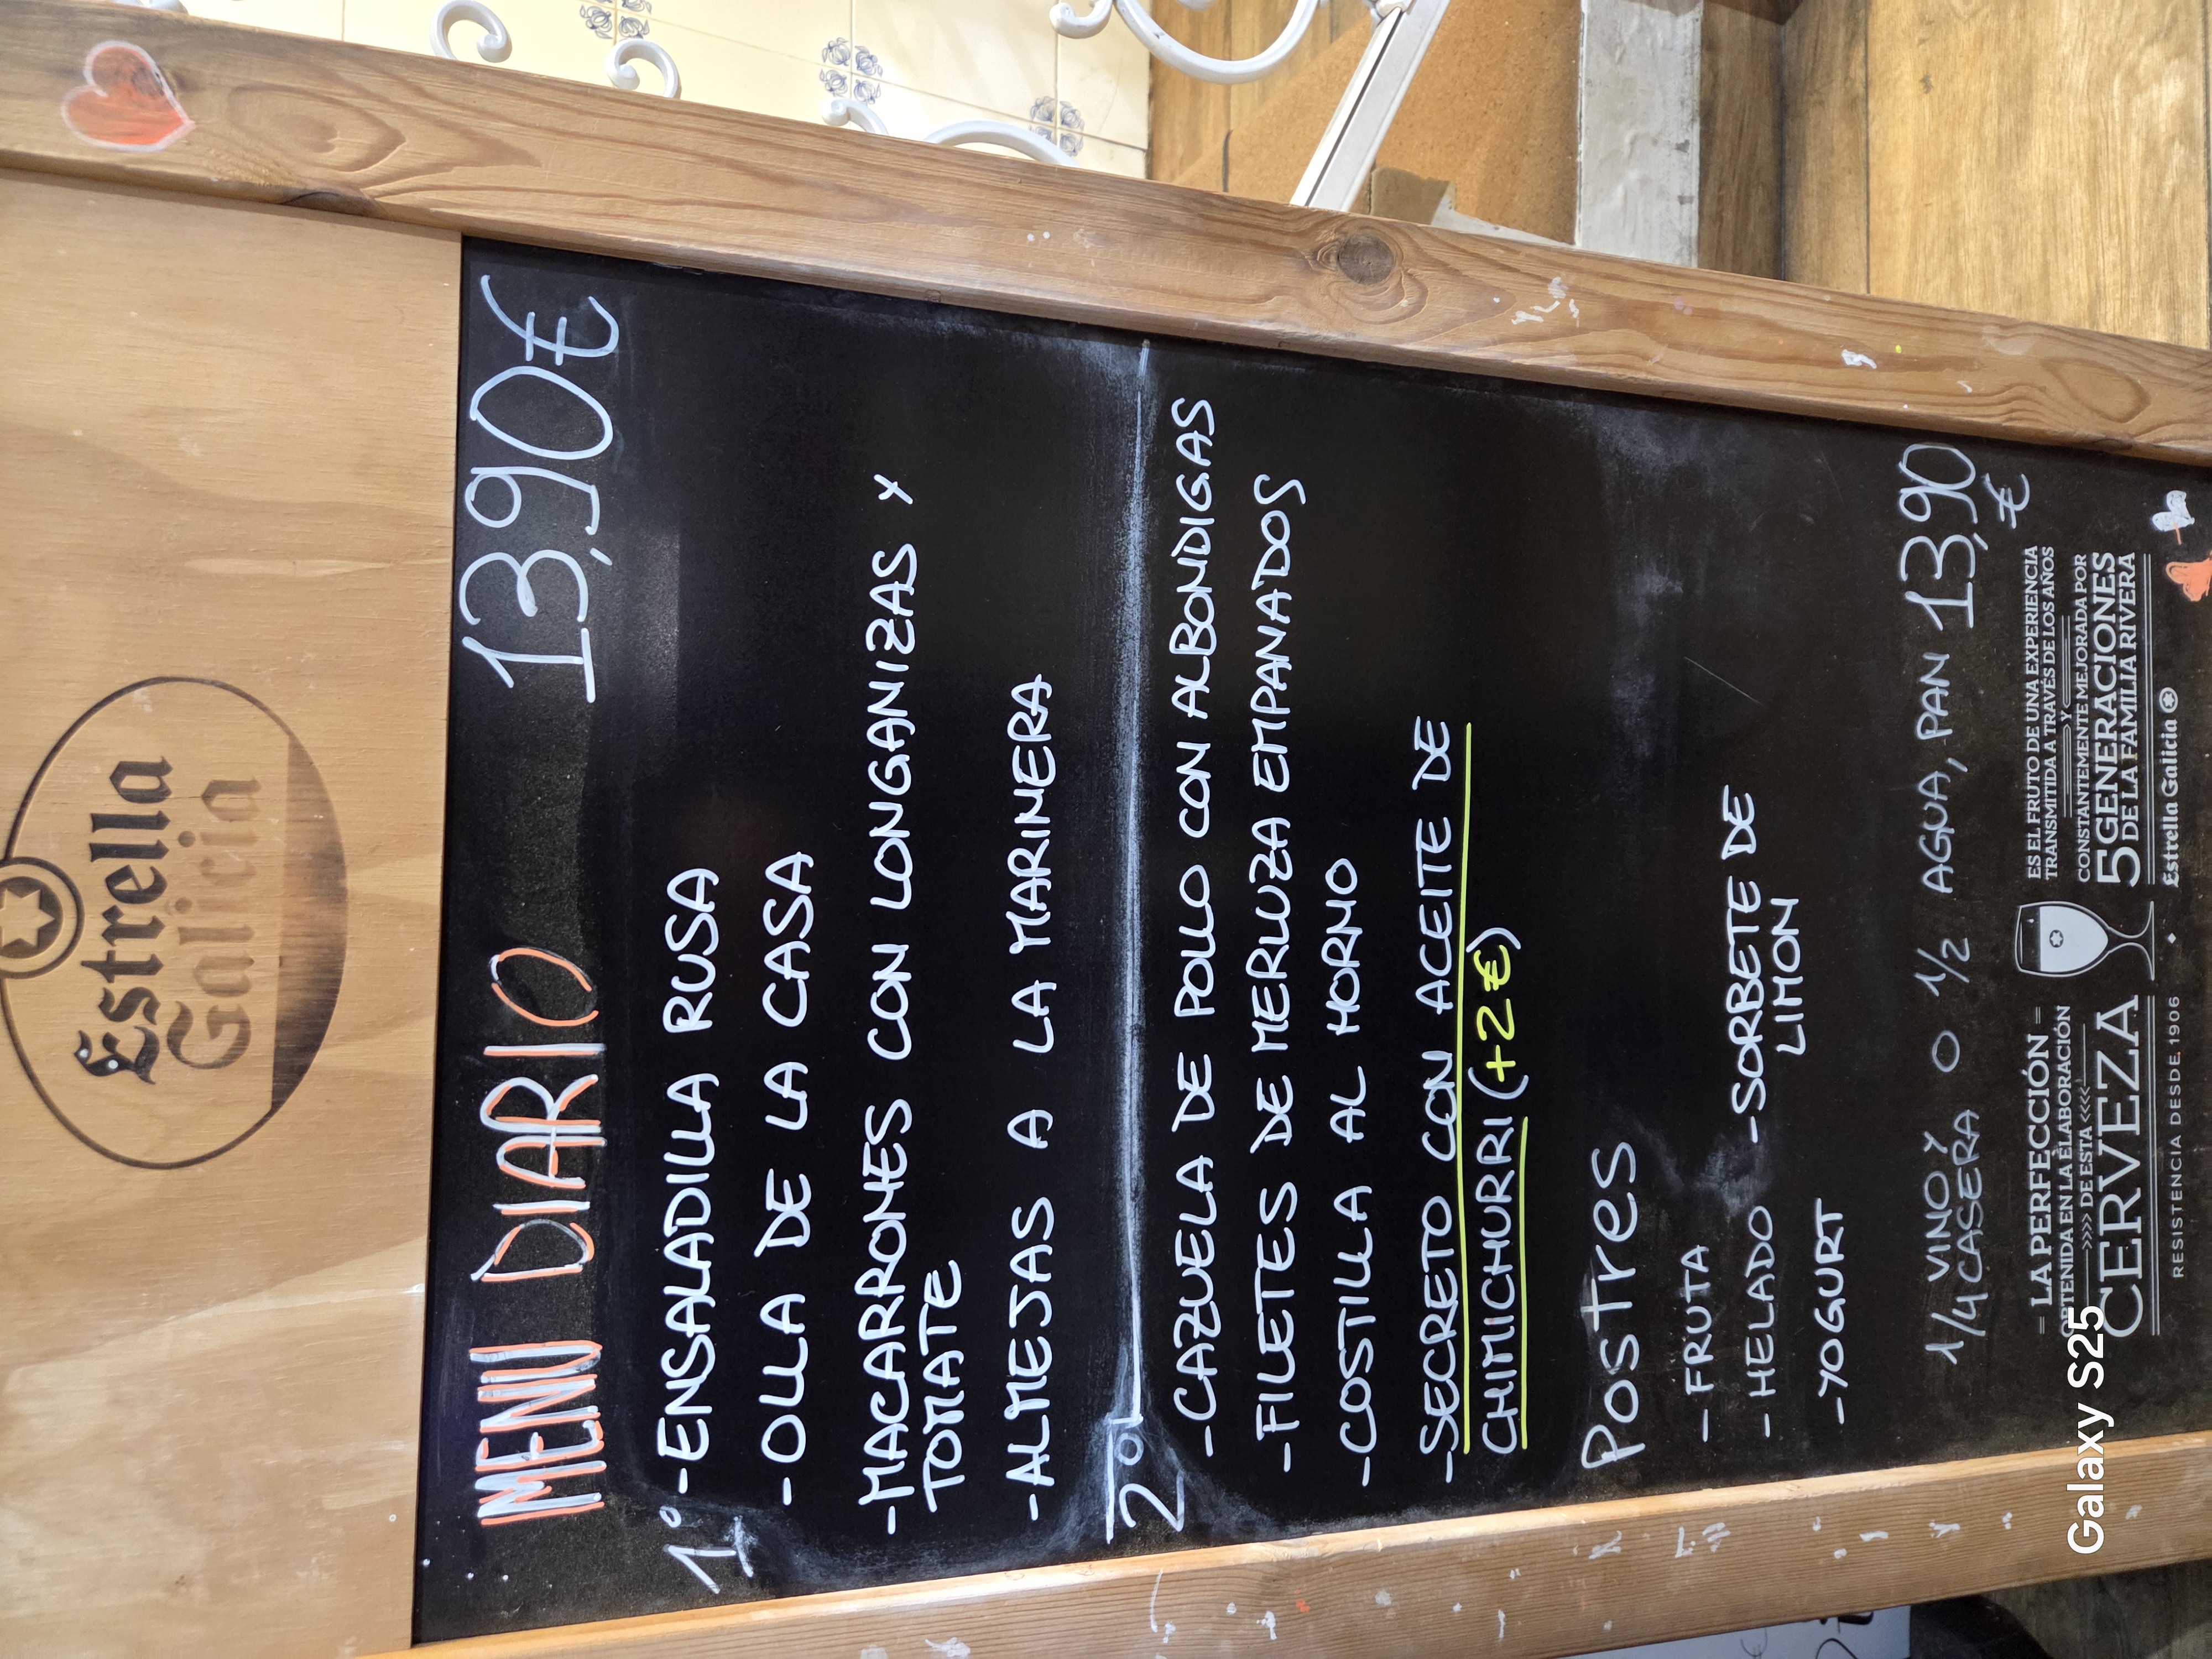 Estrella
Galicia
MENU DIARIO 13,90€
1º -ENSALADILLA RUSA
-OLLA DE LA CASA
-MACARRONES CON LONGANIZAS Y
TOMATE
-ALMEJAS A LA MARINERA
2º
-CAZUELA DE POLLO CON ALBONDIGAS
-FILETES DE MERLUZA EMPANADOS
-COSTILLA AL HORNO
-SECRETO CON ACEITE DE
CHIMICHURRI (+2€)
Postres
-FRUTA
-HELADO -SORBETE DE
LIMON
-YOGURT
1/4 VINO Y
CASERA O 1/2 AGUA, PAN 13,90
€
= LA PERFECCIÓN =
OBTENIDA EN LA ELABORACIÓN
>>>>> DE ESTA <<<<<
CERVEZA
ES EL FRUTO DE UNA EXPERIENCIA
TRANSMITIDA A TRAVÉS DE LOS AÑOS
Y
CONSTANTEMENTE MEJORADA POR
5 GENERACIONES
DE LA FAMILIA RIVERA
RESISTENCIA DESDE 1906 Estrella Galicia
Galaxy S25